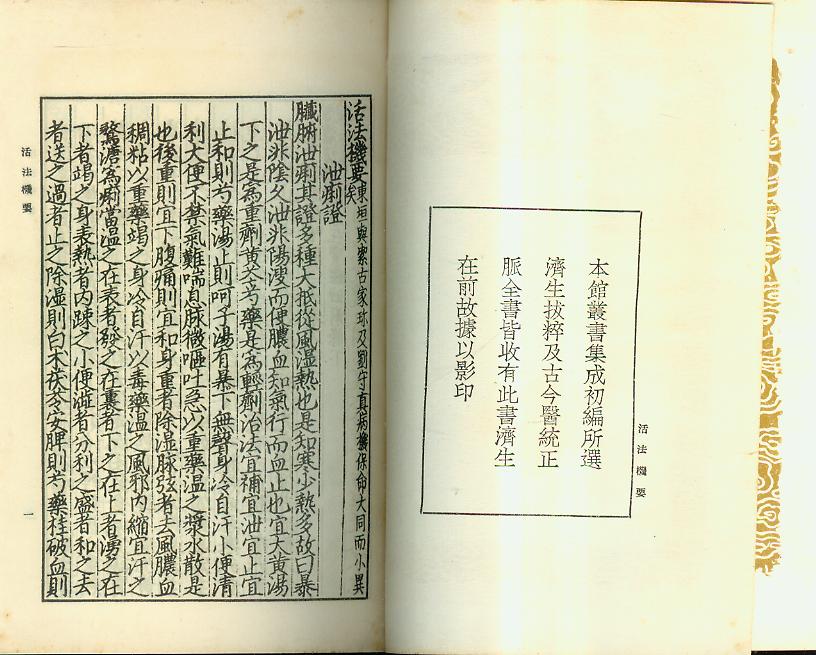 活法機要
本館叢書集成初編所選
濟生拔粹及古今醫統正
脈全書皆收有此書濟生
在前故據以影印
活法機要 東垣與絜古家珍及劉守真病機保命大同而小異
矣
泄痢證
臟腑泄痢其證多種大抵從風温熱也是知寒少熱多故曰暴
泄非陰久泄非陽溲而便膿血知氣行而血止也宜大黄湯
下之是為重劑黄芩芍藥是為輕劑活法宜補宜泄宜止宜
止和則芍藥湯止則呵子湯有暴下無聲身冷自汗小便清
利大便不禁氣難喘息脉微嘔吐急以重藥温之漿水散是
也後重則宜下腹痛則宜和身重者除湿脉弦者去風膿血
稠粘以重藥竭之身冷自汗以毒藥温之風邪内縮宜汗之
鶩溏為痢當温之在表者發之在裏者下之在上者湧之在
下者竭之身表熱者内踈之小便澁者分利之盛者和之去
者送之過者止之除湿則白术茯苓安脾則芍藥桂破血則
活法機要
一